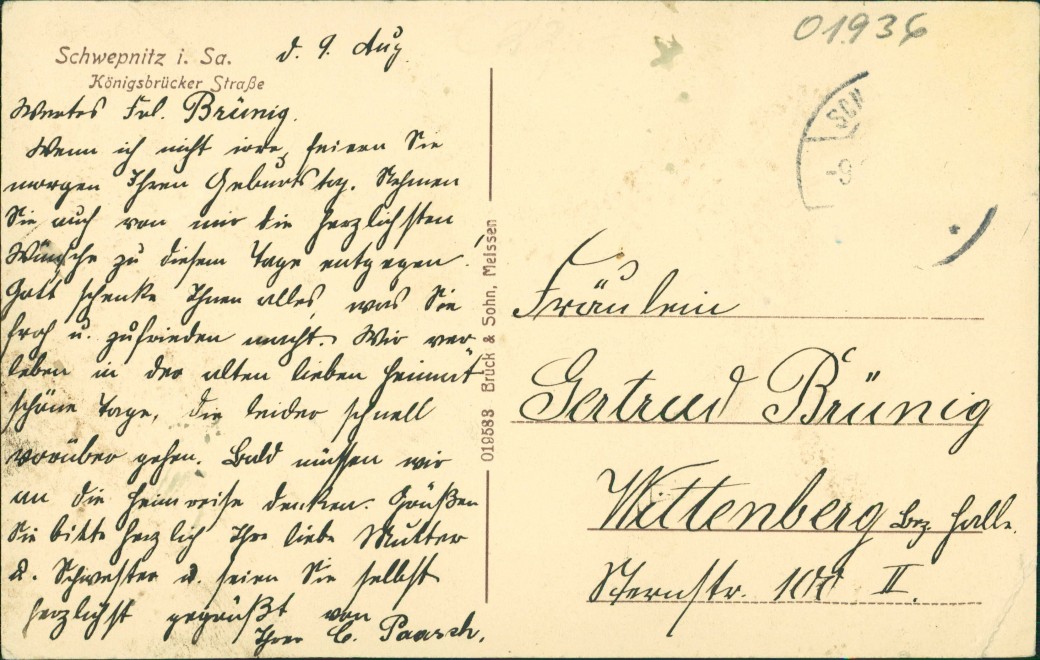 Schwepnitz i. Sa.
Königsbrücker Straße
d. 9. Aug.
Wertes Frl. Brünig.
Wenn ich nicht irre, feiern Sie
morgen Ihren Geburtstag. Nehmen
Sie auch von mir die herzlichsten
Wünsche zu diesem Tage entgegen.
Gott schenke Ihnen alles, was Sie
froh u. zufrieden macht. Wir ver-
leben in der alten lieben Heimat
schöne Tage, die leider schnell
vorüber gehen. Bald müssen wir
an die Heimreise denken. Grüßen
Sie bitte herzlich Ihre liebe Mutter
u. Schwester u. seien Sie selbst
herzlichst gegrüßt von
Ihrer C. Paasch.
019588 Brück & Sohn, Meissen
01936
SCH
-9
Fräulein
Gertrud Brünig
Wittenberg Bez. Halle.
Sternstr. 100 II.